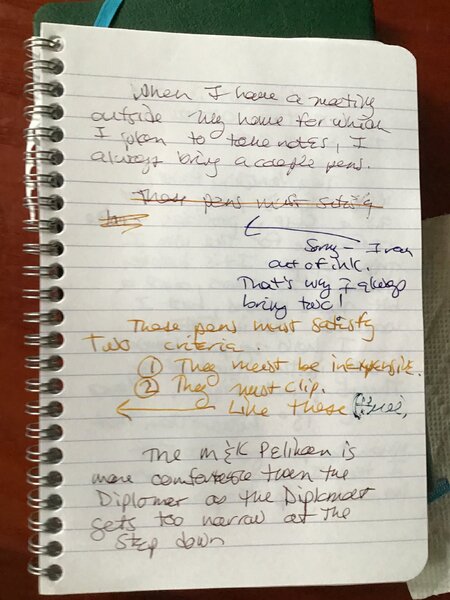 When I have a meeting
outside my home for which
I to take notes, I
always bring a couple pens.
These pens must satisfy
Sorry – I ran
out of ink.
That's why I always
bring two!
These pens must satisfy
Two criteria.
① They must be inexpensive.
② They must clip.
Like these
The M&K Pelikan is
more comfortable than the
Diplomat as the Diplomat
gets too narrow at the
step down